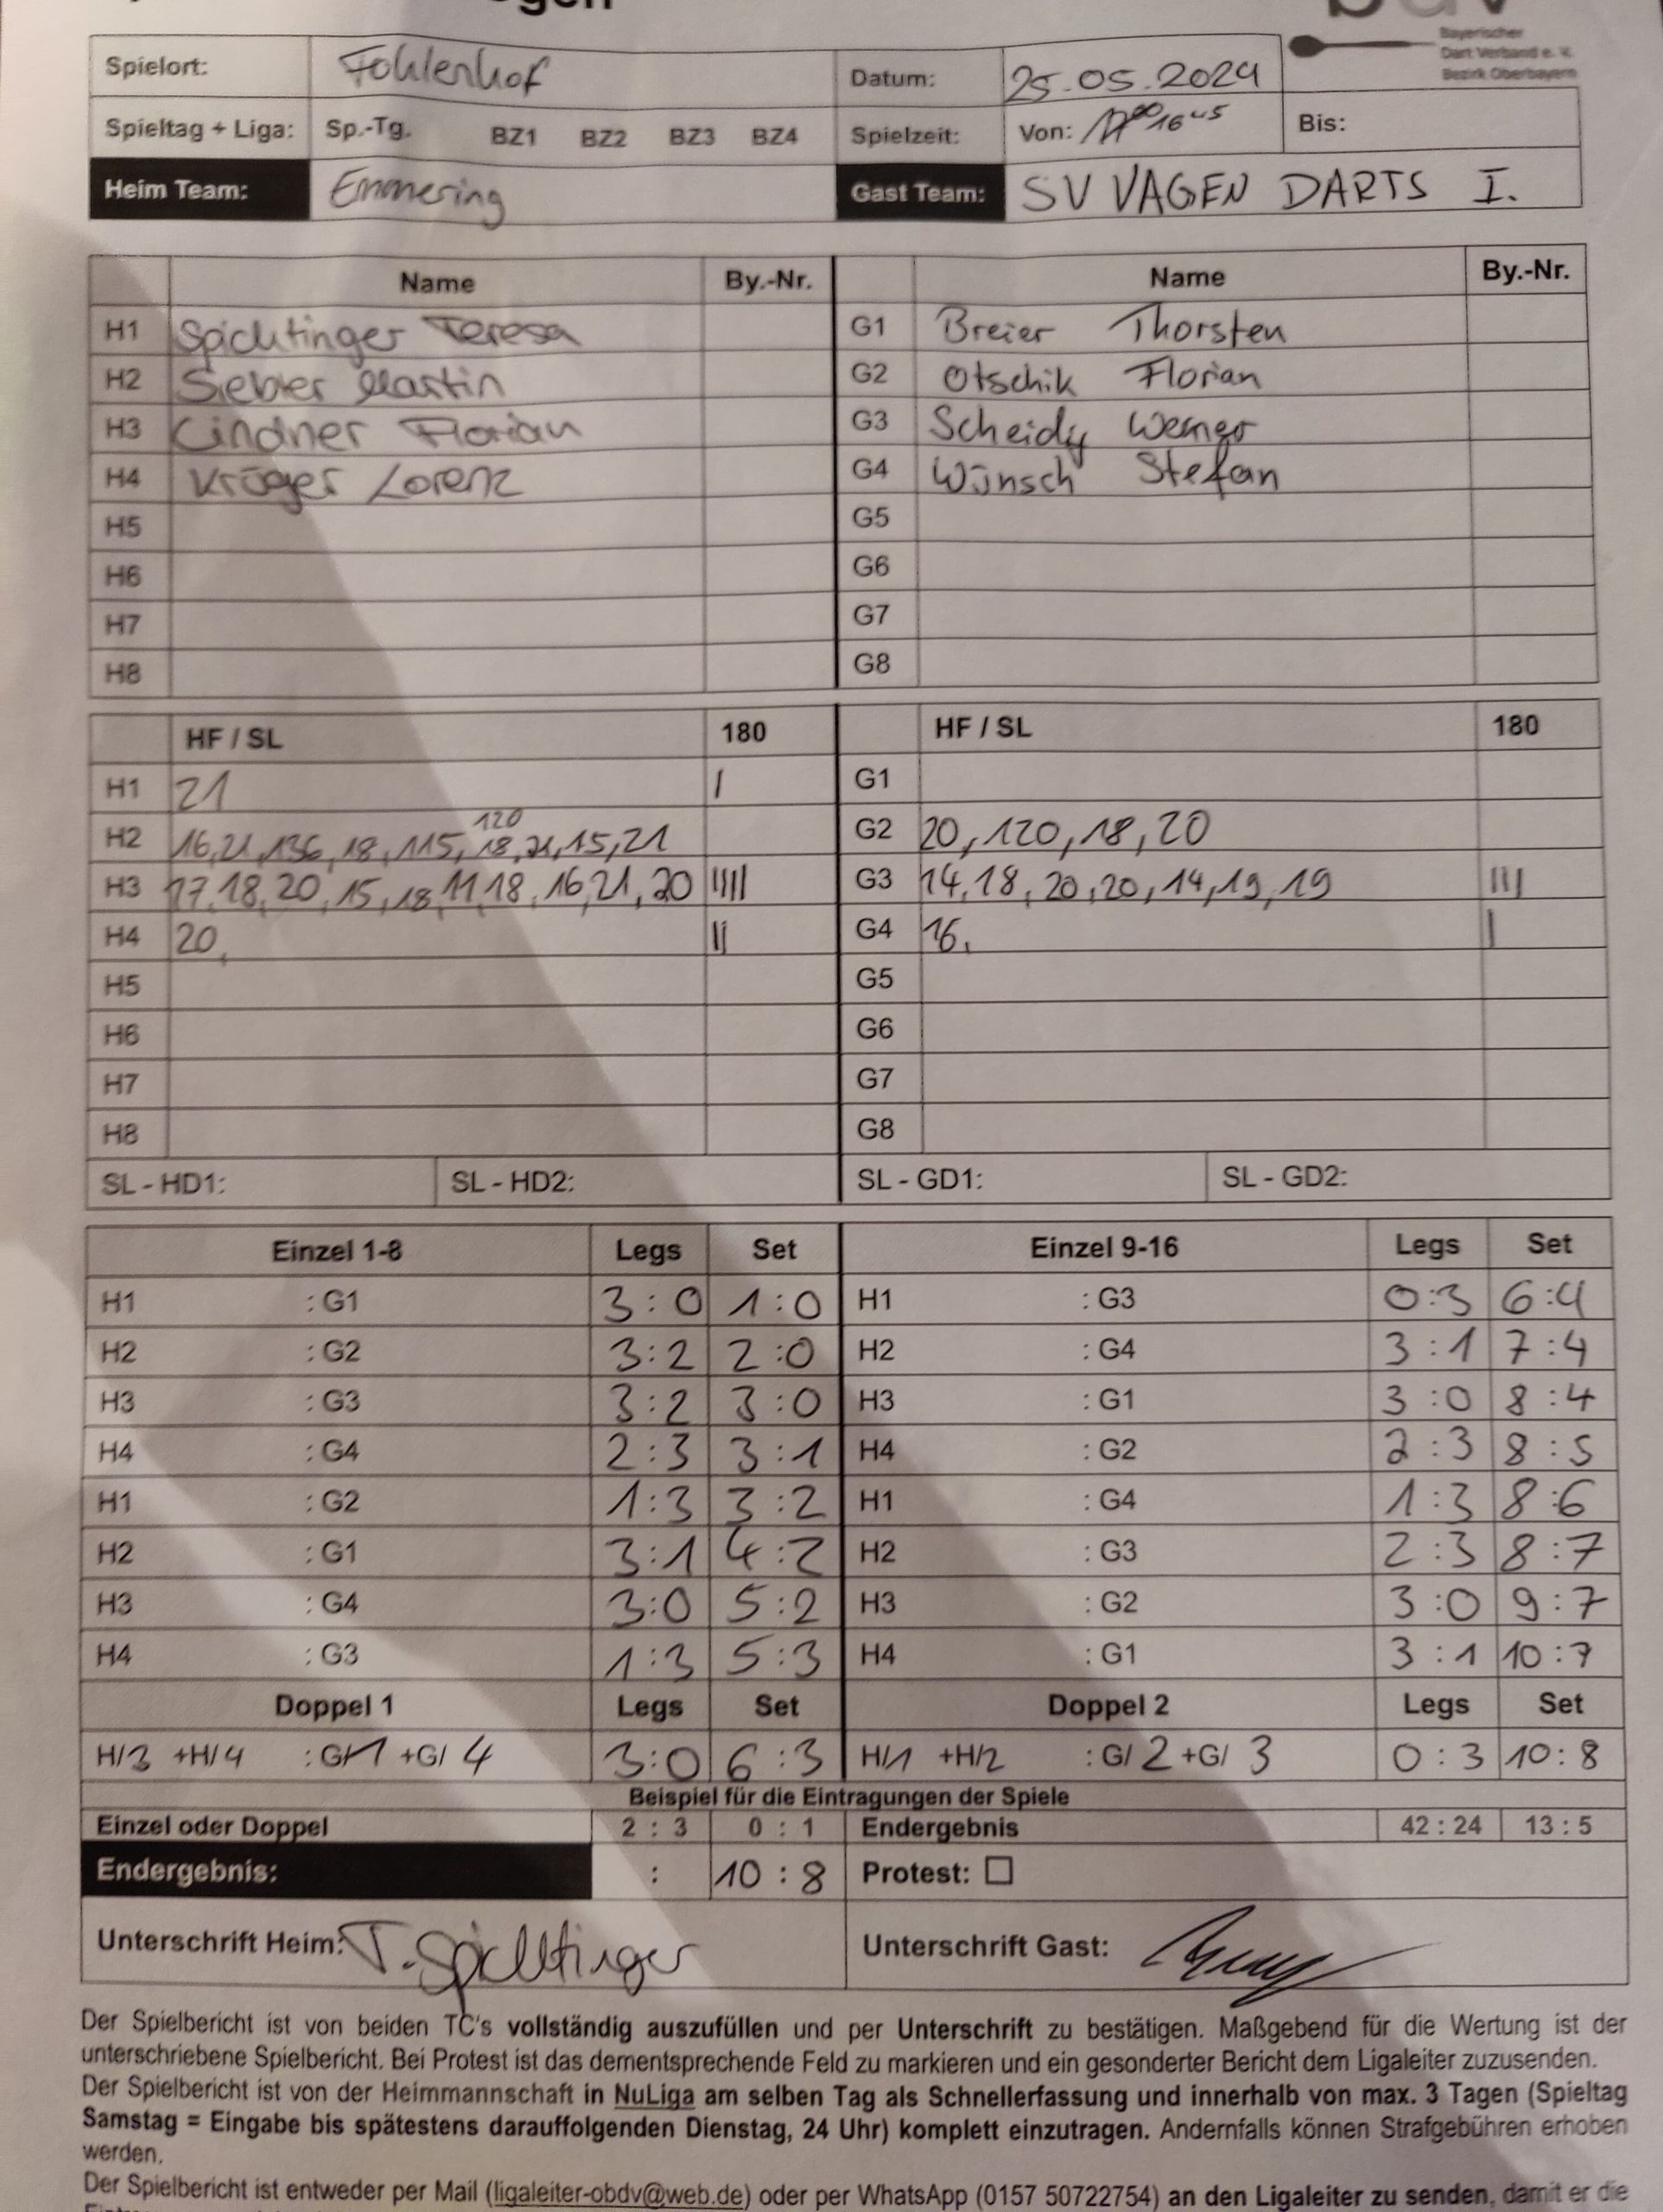 Bayerischer
Dart Verband e. V.
Bezirk Oberbayern
Spielort: Fohlenhof Datum: 25.05.2024
Spieltag + Liga: Sp.-Tg. BZ1 BZ2 BZ3 BZ4 Spielzeit: Von: 16⁴⁵ Bis:
Heim Team: Emmering Gast Team: SV VAGEN DARTS I.
Name By.-Nr. Name By.-Nr.
H1 Spöchtinger Teresa G1 Breier Thorsten
H2 Martin G2 Otschik Florian
H3 Lindner Florian G3 Werner
H4 Kröger Lorenz G4 Wünsch Stefan
H5 G5
H6 G6
H7 G7
H8 G8
HF / SL 180 HF / SL 180
H1 21 I G1
120
H2 16, 21, 136, 18, 115, 18, 21, 15, 21 G2 20, 120, 18, 20
H3 17, 18, 20, 15, 18, 11, 18, 16, 21, 20 IIII G3 14, 18, 20, 20, 14, 19, 19 III
H4 20, II G4 16, I
H5 G5
H6 G6
H7 G7
H8 G8
SL - HD1: SL - HD2: SL - GD1: SL - GD2:
Einzel 1-8 Legs Set Einzel 9-16 Legs Set
H1 : G1 3 : 0 1 : 0 H1 : G3 0 : 3 6 : 4
H2 : G2 3 : 2 2 : 0 H2 : G4 3 : 1 7 : 4
H3 : G3 3 : 2 3 : 0 H3 : G1 3 : 0 8 : 4
H4 : G4 2 : 3 3 : 1 H4 : G2 2 : 3 8 : 5
H1 : G2 1 : 3 3 : 2 H1 : G4 1 : 3 8 : 6
H2 : G1 3 : 1 4 : 2 H2 : G3 2 : 3 8 : 7
H3 : G4 3 : 0 5 : 2 H3 : G2 3 : 0 9 : 7
H4 : G3 1 : 3 5 : 3 H4 : G1 3 : 1 10 : 7
Doppel 1 Legs Set Doppel 2 Legs Set
H/3 +H/4 : G/1 +G/ 4 3 : 0 6 : 3 H/1 +H/2 : G/ 2 +G/ 3 0 : 3 10 : 8
Beispiel für die Eintragungen der Spiele
Einzel oder Doppel 2 : 3 0 : 1 Endergebnis 42 : 24 13 : 5
Endergebnis: : 10 : 8 Protest: ☐
Unterschrift Heim: T. Spöchtinger Unterschrift Gast:
Der Spielbericht ist von beiden TC's vollständig auszufüllen und per Unterschrift zu bestätigen. Maßgebend für die Wertung ist der
unterschriebene Spielbericht. Bei Protest ist das dementsprechende Feld zu markieren und ein gesonderter Bericht dem Ligaleiter zuzusenden.
Der Spielbericht ist von der Heimmannschaft in NuLiga am selben Tag als Schnellerfassung und innerhalb von max. 3 Tagen (Spieltag
Samstag = Eingabe bis spätestens darauffolgenden Dienstag, 24 Uhr) komplett einzutragen. Andernfalls können Strafgebühren erhoben
werden.
Der Spielbericht ist entweder per Mail (ligaleiter-obdv@web.de) oder per WhatsApp (0157 50722754) an den Ligaleiter zu senden, damit er die